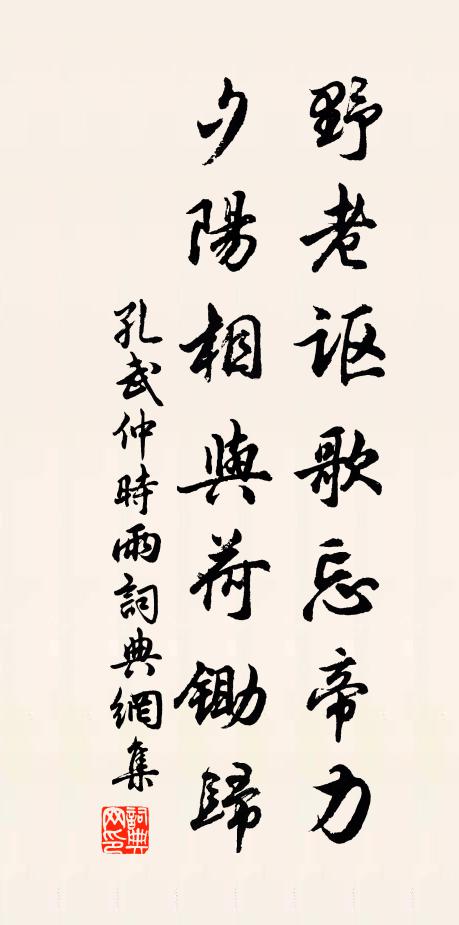 野老讴歌忘帝力
夕陽相與荷锄歸
孔武仲時雨詞典網集
詞典网印